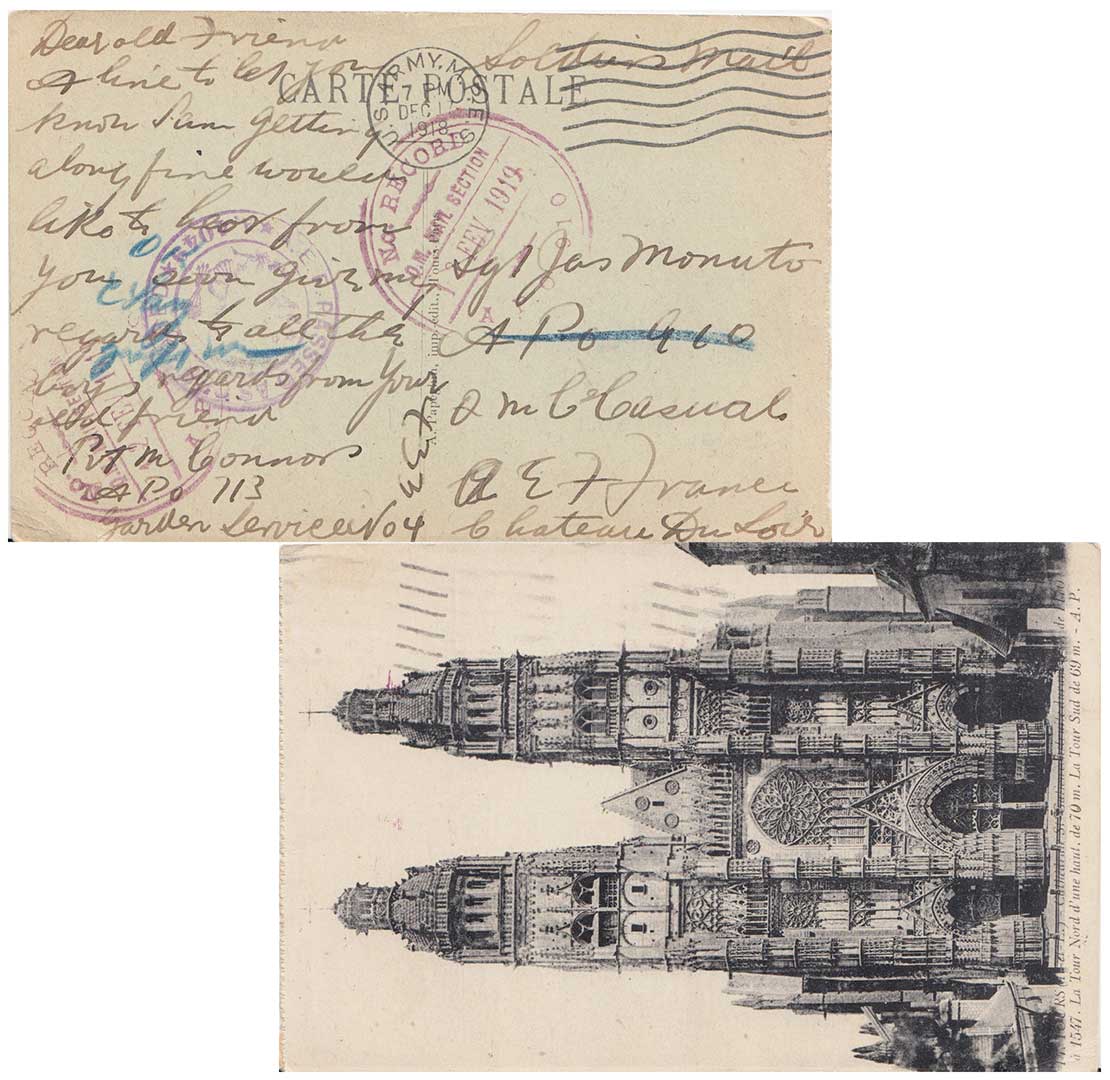 Dear old Friend
A line to let you
know I am getting
along fine would
like to hear from
you soon give me
regards to all the
boys regards from your
old friend
Pvt M Connors
APO 713
Garden Service No 4
AEF
Soldiers Mail
CARTE POSTALE
U.S. ARMY M.P.E.S.
7 PM
DEC 1
1918
NO RECORD
Q.M. SECTION
FEV 1919
Sgt Jas Monuto
APO 910
Q M C Casual
A E F France
Chateau Du Loir
A.E.F. PASSED AS
RECORD
à 1547. La Tour Nord d'une haut. de 70 m. La Tour Sud de 69 m. - A. P.